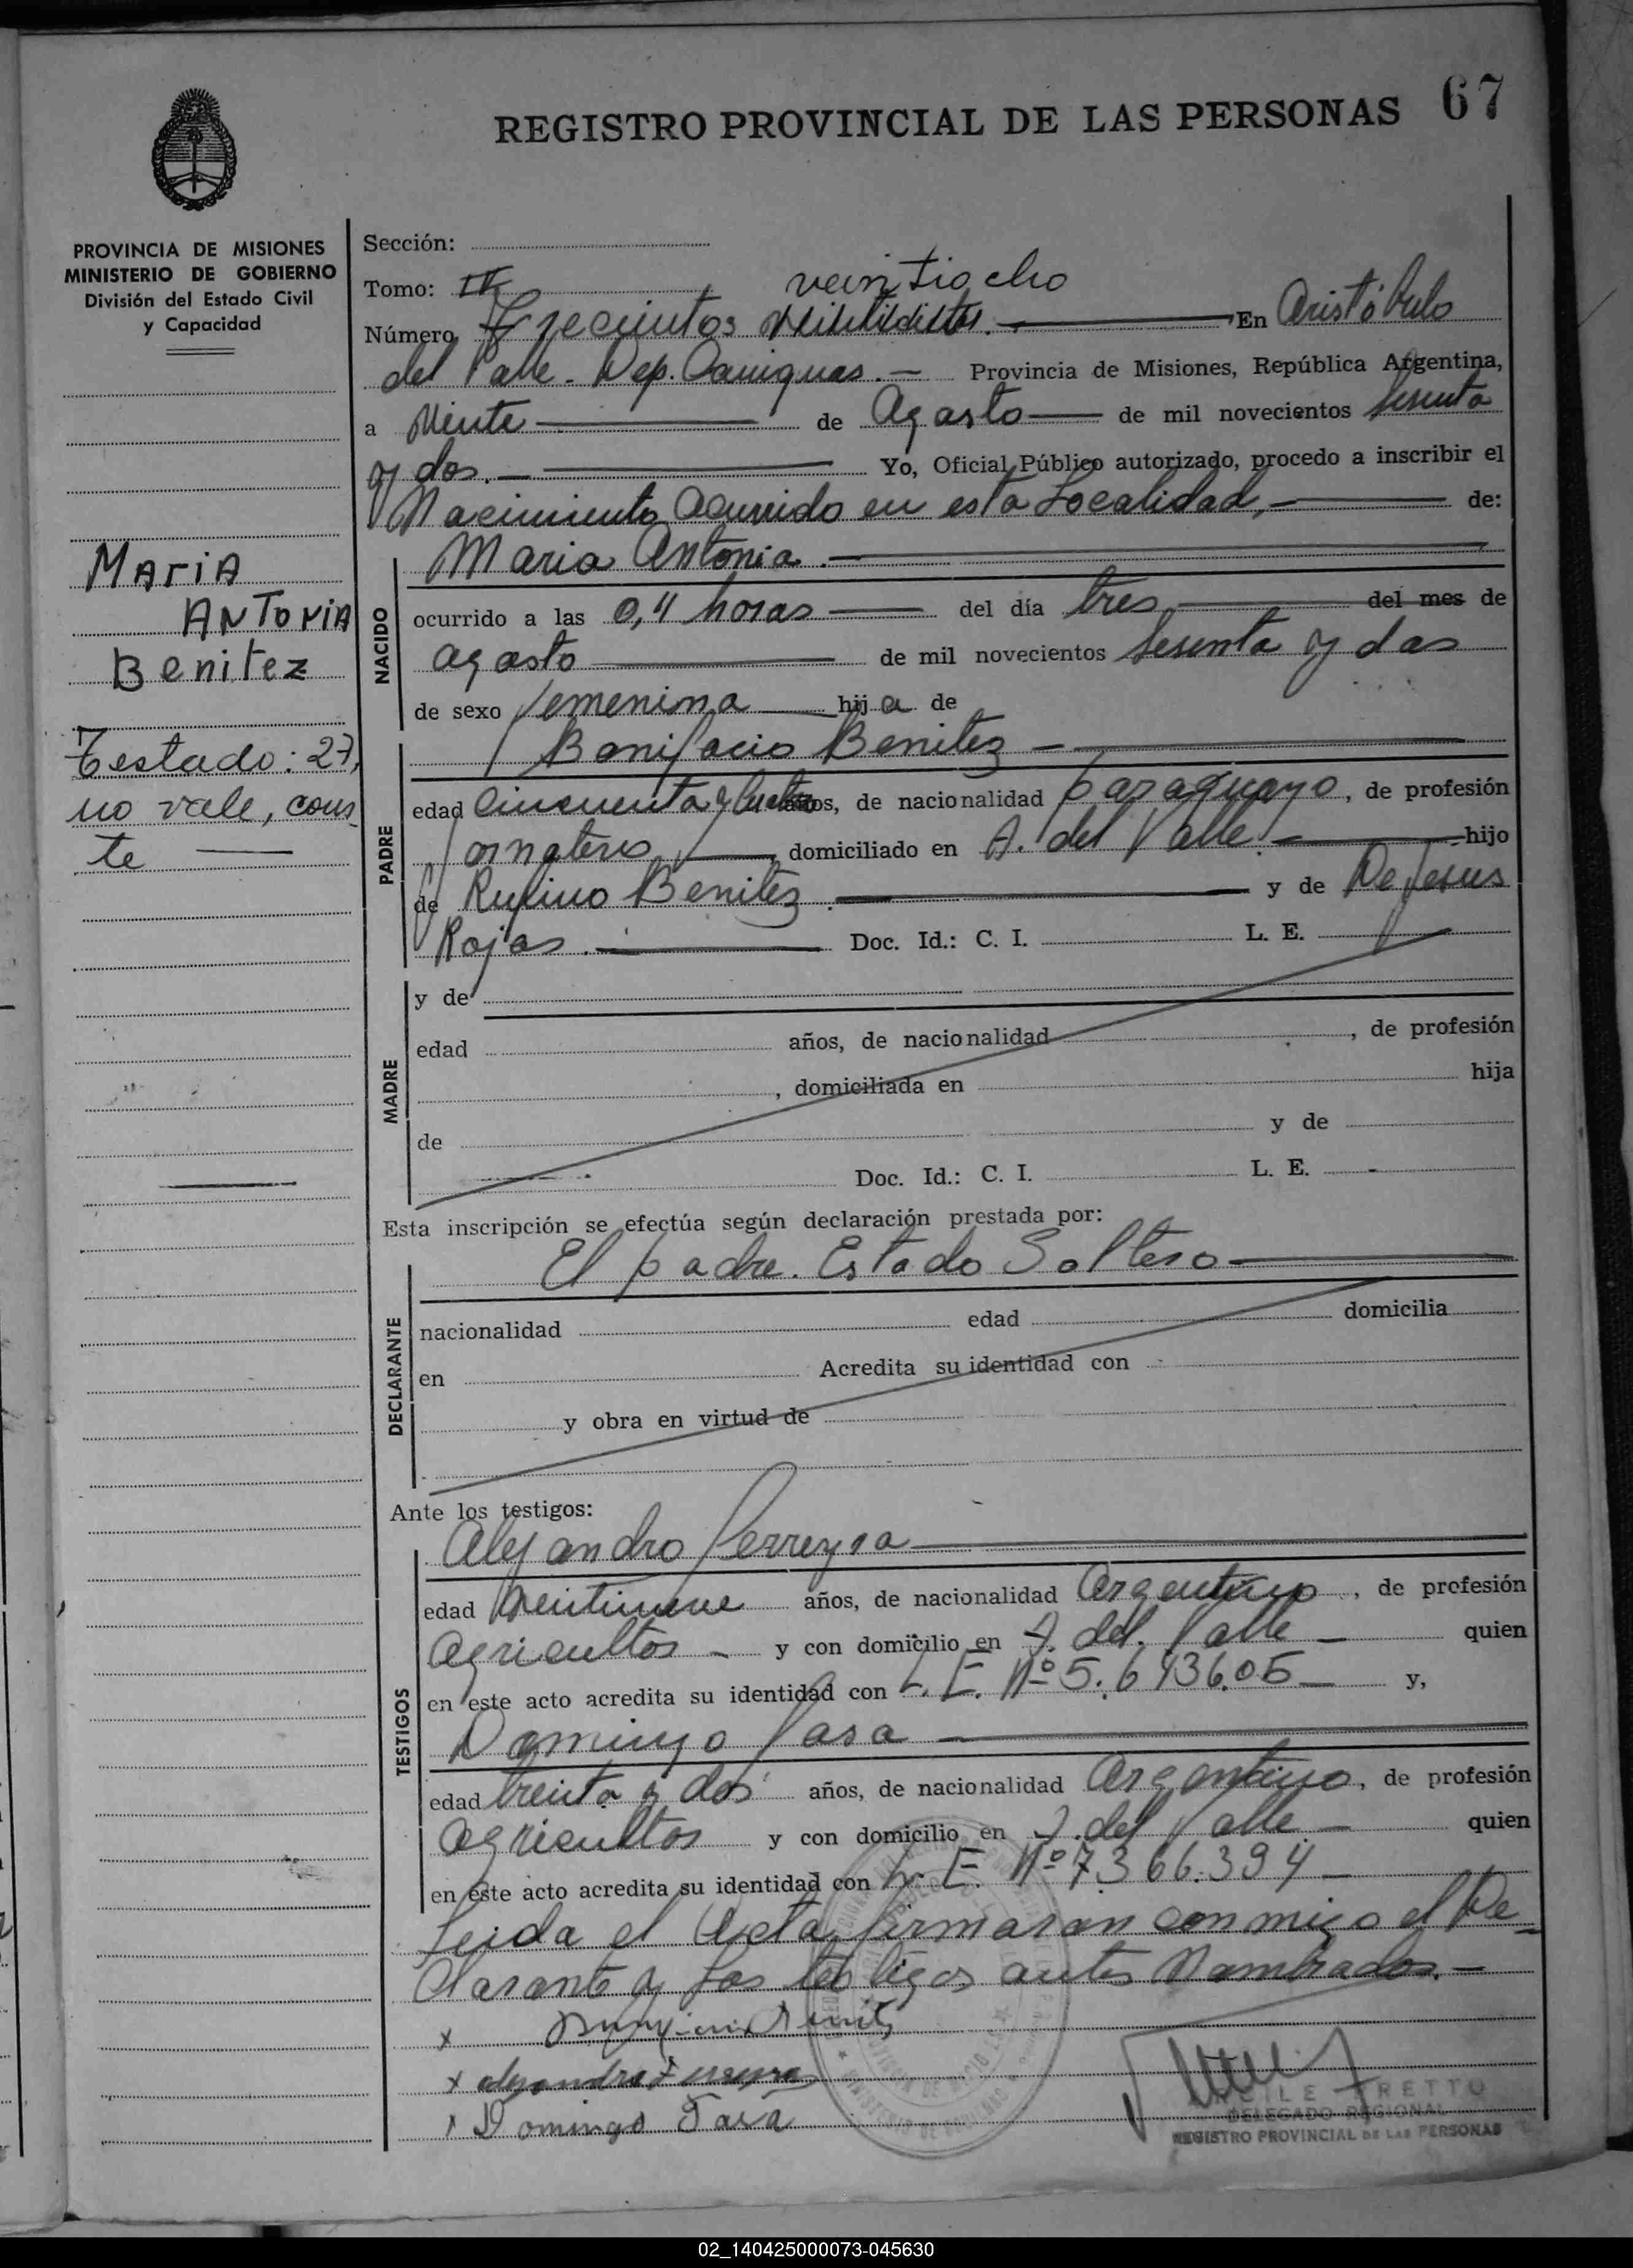 REGISTRO PROVINCIAL DE LAS PERSONAS 67
PROVINCIA DE MISIONES
MINISTERIO DE GOBIERNO
División del Estado Civil
y Capacidad
Maria
Antonia
Benitez
Testado: 27,
no vale, cons
te
Sección:
Tomo: IV
veintiocho
Número Trecientos En Aristóbulo
del Valle. Dep. Cainguas. Provincia de Misiones, República Argentina,
a Veinte de Agosto de mil novecientos sesenta
y dos. Yo, Oficial Público autorizado, procedo a inscribir el
Nacimiento Ocurrido en esta Localidad, de:
NACIDO
Maria Antonia.
ocurrido a las 0,4 horas del día tres del mes de
agosto de mil novecientos sesenta y dos
de sexo femenina hija de
PADRE
Bonifacio Benitez
edad cincuenta y años, de nacionalidad paraguayo, de profesión
Jornalero, domiciliado en A. del Valle. hijo
de Rufino Benitez y de De Jesus
Rojas. Doc. Id.: C. I. L. E.
MADRE
y de
edad años, de nacionalidad , de profesión
, domiciliada en hija
de y de
Doc. Id.: C. I. L. E.
Esta inscripción se efectúa según declaración prestada por:
DECLARANTE
El padre. Estado Soltero
nacionalidad edad domicilia
en Acredita su identidad con
y obra en virtud de
Ante los testigos:
TESTIGOS
Alejandro Ferreyra
edad Veintinueve años, de nacionalidad Argentino, de profesión
agricultor y con domicilio en A. del Valle quien
en este acto acredita su identidad con L. E. Nº 5.643605 y,
Domingo Jara
edad treinta y dos años, de nacionalidad Argentino, de profesión
agricultor y con domicilio en A. del Valle quien
en este acto acredita su identidad con L. E. Nº 7.366.394
Leida el Acta, firmaron conmigo el De-
clarante y Los testigos antes Nombrados.
x
x Alejandro Ferreyra
x Domingo Jara
DELEGADO REGIONAL
REGISTRO PROVINCIAL DE LAS PERSONAS
02_140425000073-045630